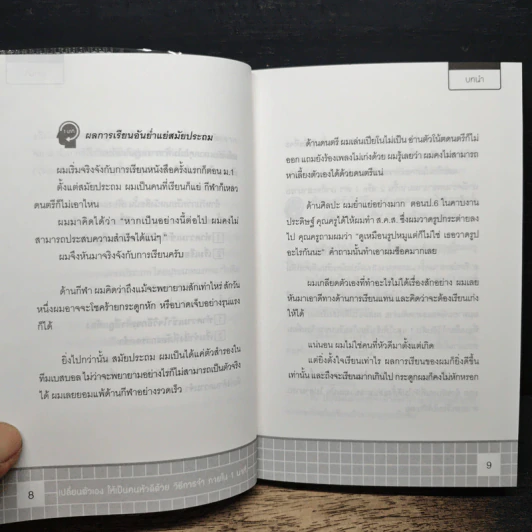 ผลการเรียนอันย่ำแย่สมัยประถม
ผมเริ่มจริงจังกับการเรียนหนังสือครั้งแรกก็ตอน ม.1
ตั้งแต่สมัยประถม ผมเป็นคนที่เรียนก็แย่ กีฬาก็เหลว
ดนตรีก็ไม่เอาไหน
ผมมาคิดได้ว่า "หากเป็นอย่างนี้ต่อไป ผมคงไม่
สามารถประสบความสำเร็จได้แน่ๆ"
ผมจึงหันมาจริงจังกับการเรียนครับ
ด้านกีฬา ผมคิดว่าถึงแม้จะพยายามสักเท่าไหร่ สักวัน
หนึ่งผมอาจจะโชคร้ายกระดูกหัก หรือบาดเจ็บอย่างรุนแรง
ก็ได้
ยิ่งไปกว่านั้น สมัยประถม ผมเป็นได้แค่ตัวสำรองใน
ทีมเบสบอล ไม่ว่าจะพยายามอย่างไรก็ไม่สามารถเป็นตัวจริง
ได้ ผมเลยยอมแพ้ด้านกีฬาอย่างรวดเร็ว
8
เปลี่ยนตัวเอง ให้เป็นคนหัวดีด้วย วิธีการจำ ภายใน 1 นาที
บทนำ
ด้านดนตรี ผมเล่นเปียโนไม่เป็น อ่านตัวโน้ตดนตรีก็ไม่
ออก แถมยังร้องเพลงไม่เก่งด้วย ผมรู้เลยว่า ผมคงไม่สามารถ
หาเลี้ยงตัวเองได้ด้วยดนตรีแน่
ด้านศิลปะ ผมย่ำแย่อย่างมาก ตอนป.6 ในคาบงาน
ประดิษฐ์ คุณครูได้ให้ผมทำ ส.ค.ส. ซึ่งผมวาดรูปกระต่ายลง
ไป คุณครูถามผมว่า "ดูเหมือนรูปหมูแต่ก็ไม่ใช่ เธอวาดรูป
อะไรกันน่ะ" คำถามนั้นทำเอาผมช็อคมากเลย
ผมเกลียดตัวเองที่ทำอะไรไม่ได้เรื่องสักอย่าง ผมเลย
หันมาเอาดีทางด้านการเรียนแทน และคิดว่าจะต้องเรียนเก่ง
ให้ได้
แน่นอน ผมไม่ใช่คนที่หัวดีมาตั้งแต่เกิด
แต่ยิ่งตั้งใจเรียนเท่าไร ผลการเรียนของผมก็ยิ่งดีขึ้น
เท่านั้น และถึงจะเรียนมากเกินไป กระดูกผมก็คงไม่หักหรอก
9